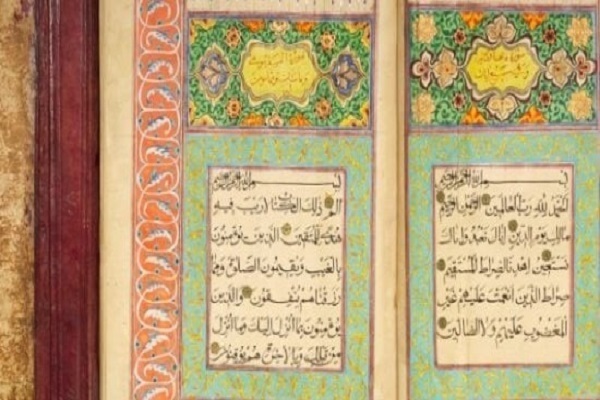 بسم الله الرحمن الرحيم
الحمد لله رب العالمين الرحمن الرحيم
مالك يوم الدين اياك نعبد واياك
نستعين اهدنا الصراط المستقيم
صراط الذين انعمت عليهم غير
المغضوب عليهم ولا الضالين
بسم الله الرحمن الرحيم
الم ذلك الكتاب لا ريب فيه
هدى للمتقين الذين يؤمنون
بالغيب ويقيمون الصلوة ومما
رزقناهم ينفقون والذين
يؤمنون بما انزل اليك وما انزل
من قبلك وبالاخرة هم يوقنون